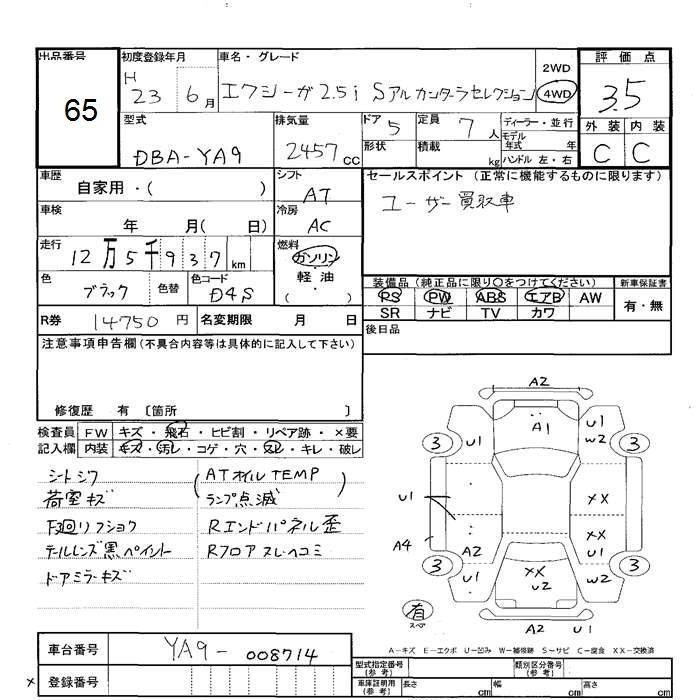 出品番号
65
初度登録年月
H
23 6月
車名・グレード
エクシーガ2.5i Sアルカンターラセレクション
2WD
4WD
評価点
3.5
外装 内装
C C
型式
DBA-YA9
排気量
2457cc
ドア 5
形状
定員 7人
積載 kg
ディーラー・並行
モデル
年式 年
ハンドル 左・右
車歴
自家用・( )
シフト
AT
車検
年 月( 日)
冷房
AC
走行
12万5千937km
燃料
ガソリン
軽油
( )
色
ブラック
色替
色コード
D4S
R券 14750円
名変期限 月 日
セールスポイント (正常に機能するものに限ります)
ユーザー買取車
装備品(純正品に限り○をつけてください)
PS PW ABS エアB AW
SR ナビ TV カワ
新車保証書
有・無
後日品
注意事項申告欄(不具合内容等は具体的に記入して下さい)
修復歴 有 〔箇所 〕
検査員
記入欄
FW キズ・飛石・ヒビ割・リペア跡・×要
内装 キズ・汚レ・コゲ・穴・スレ・キレ・破レ
シートシワ
荷室キズ
下廻リフショク
テールレンズ黒ペイント
ドアミラーキズ
(ATオイルTEMP
ランプ点滅)
Rエンドパネル歪
Rフロアスレヘコミ
A2
A1
U1
U1
W2
3 3
U1
XX
A4
A2
XX
U1
3 3
U1
XX
U2
W2
有
スペア
A2 U1
A-キズ E-エクボ U-凹み W-補修跡 S-サビ C-腐食 XX-交換済
車台番号
YA9-008714
× 登録番号
型式指定番号
(参考)
類別区分番号
(参考)
車庫証明用
(参考)
長さ cm 幅 cm 高さ cm